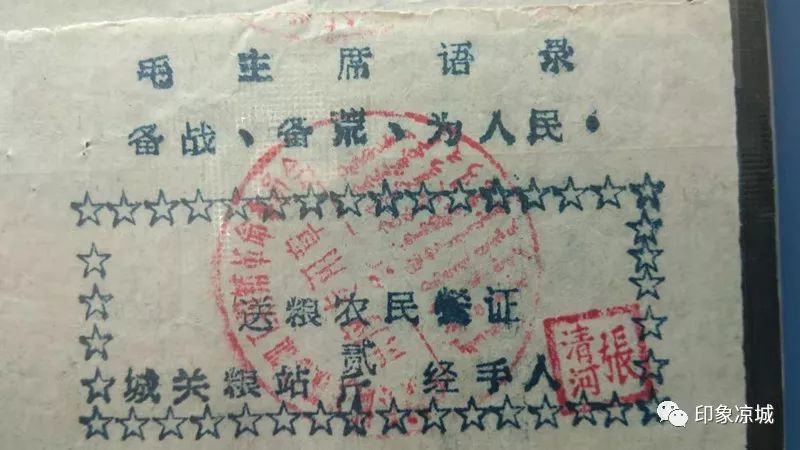 毛主席语录
备战、备荒、为人民.
送粮农民餐证
贰斤
城关粮站 经手人
張清河
印象凉城